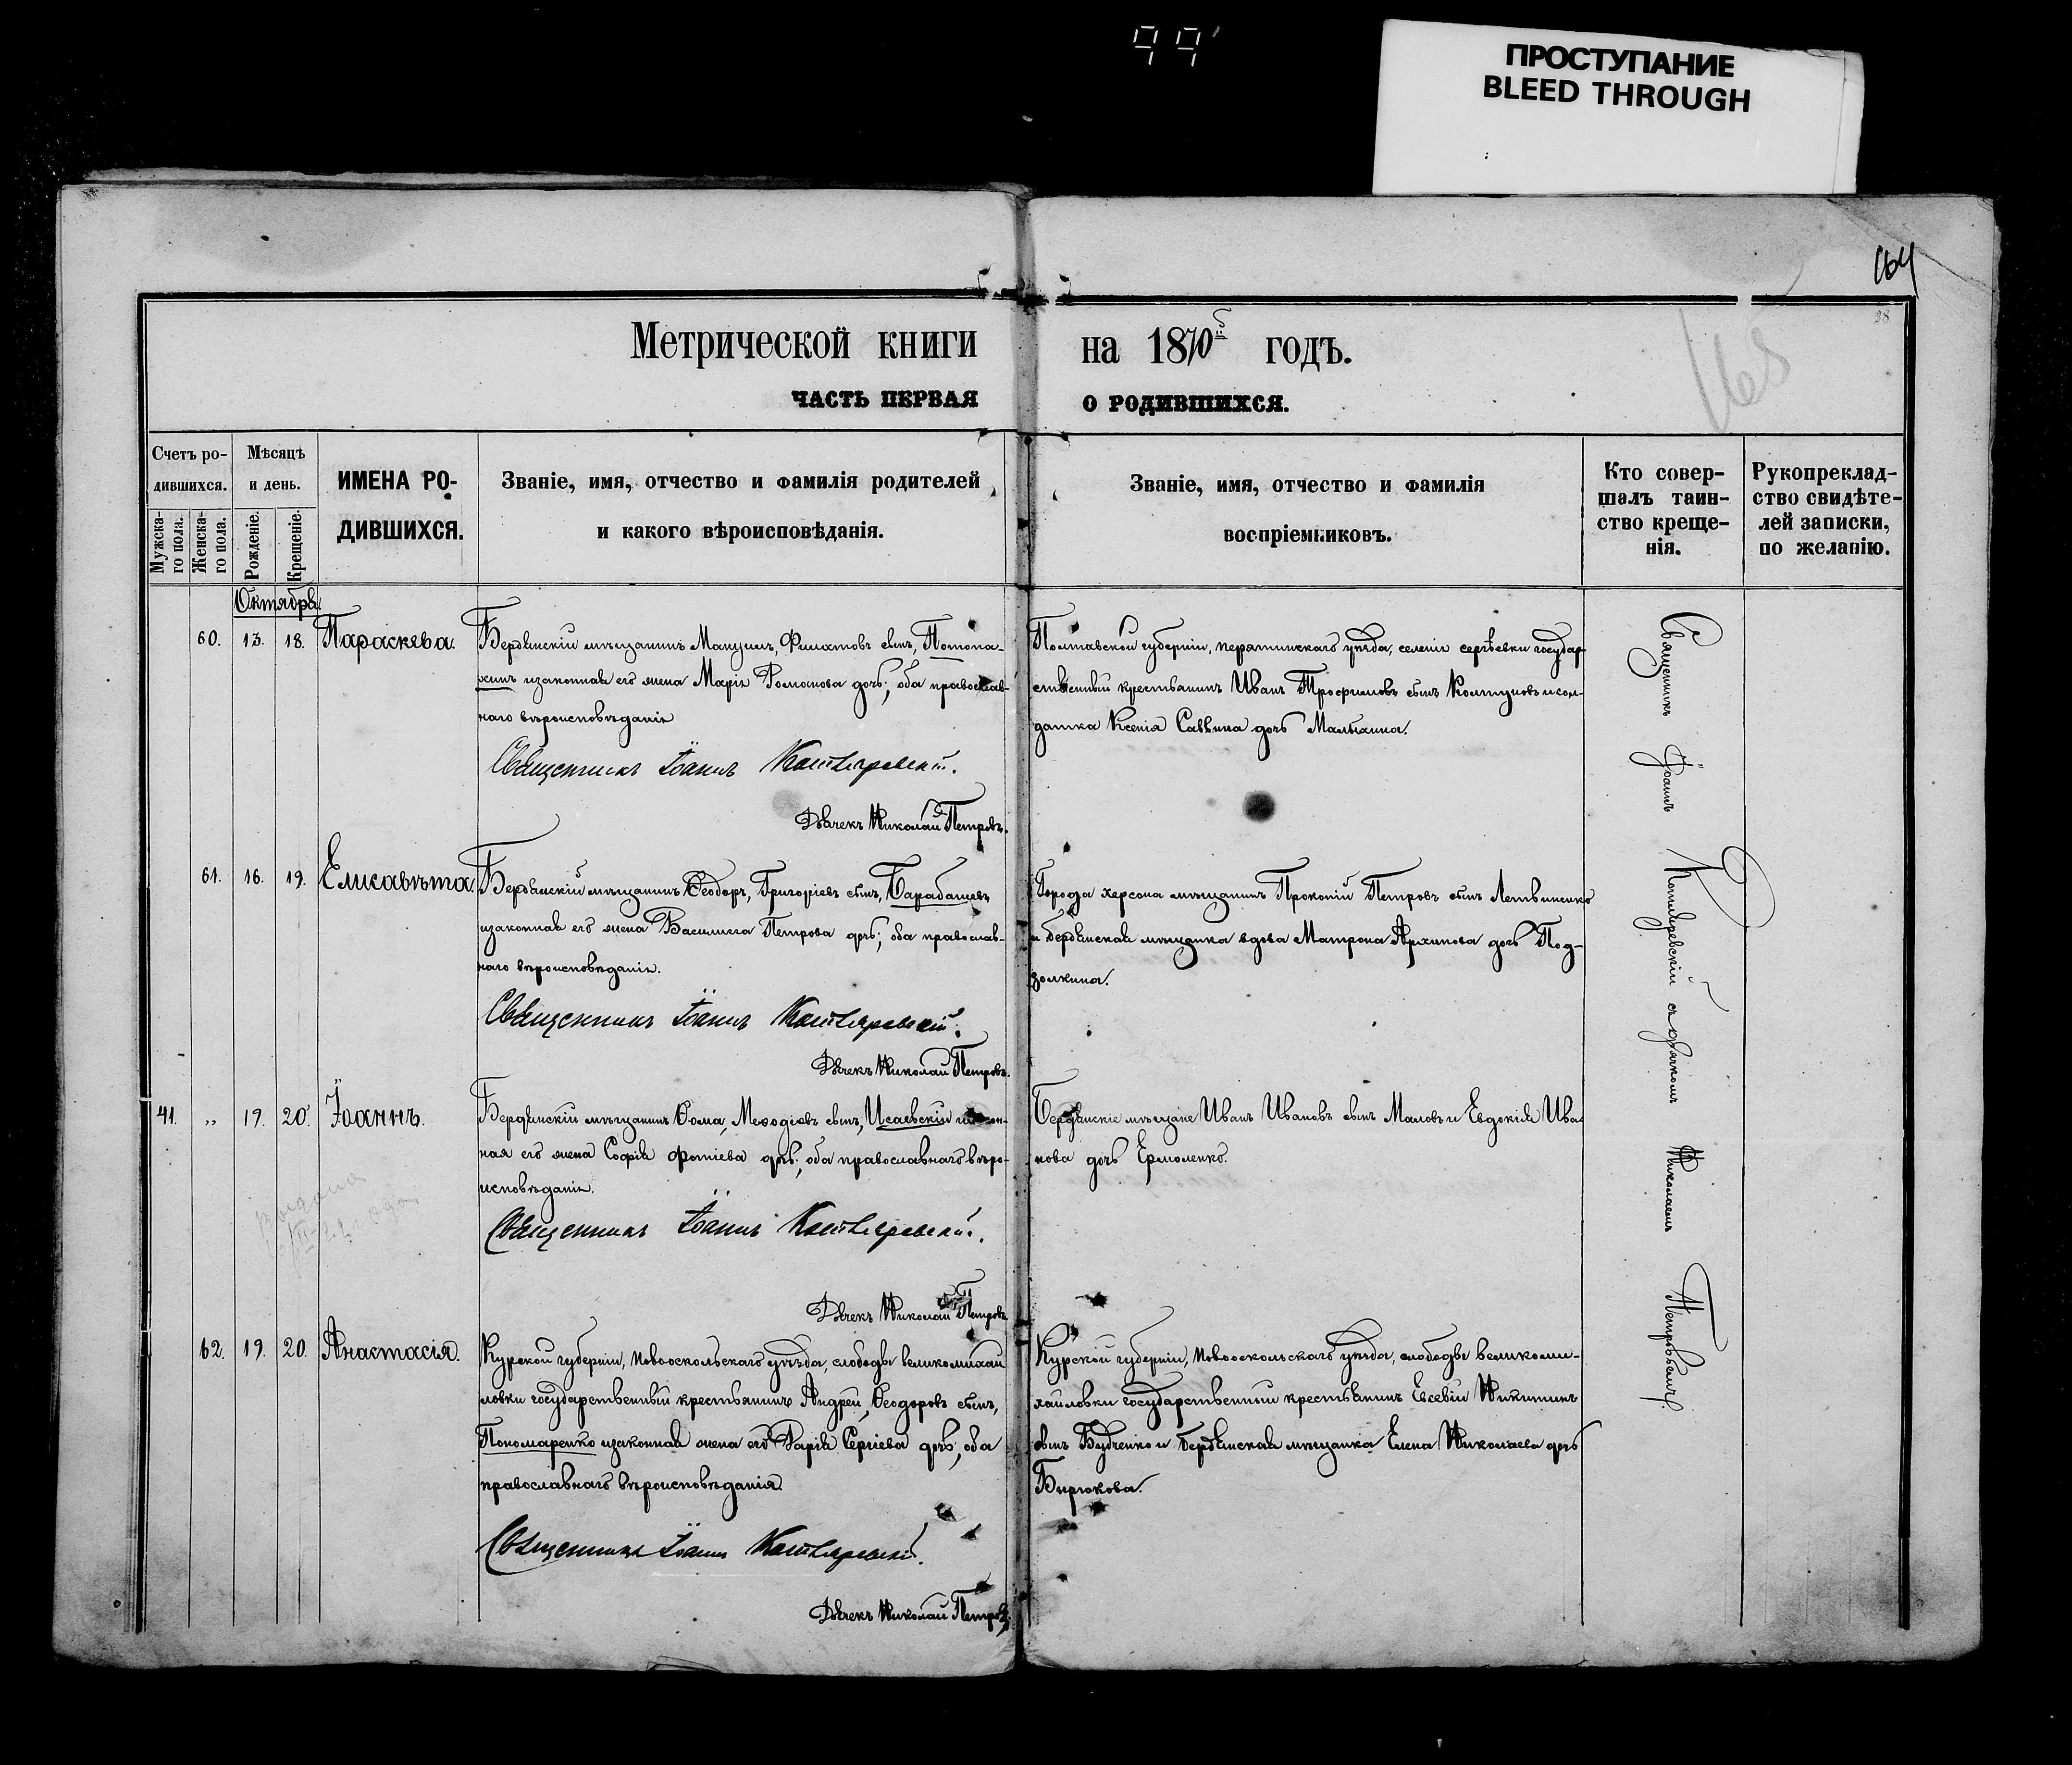 99
ПРОСТУПАНИЕ
BLEED THROUGH
164
28
165
Метрической книги на 1870й годъ.
ЧАСТЬ ПЕРВАЯ О РОДИВШИХСЯ.
Счетъ родившихся.
Мужскаго пола.
Женскаго пола.
Мѣсяцъ и день.
Рожденіе.
Крещеніе.
ИМЕНА РОДИВШИХСЯ.
Званіе, имя, отчество и фамилія родителей
и какого вѣроисповѣданія.
Званіе, имя, отчество и фамилія
воспріемниковъ.
Кто совершалъ таинство крещенія.
Рукоприкладство свидѣтелей записки, по желанію.
Октября
60. 13. 18. Параскева.
Бердянскій мѣщанинъ Филатовъ сынъ,
изаконная его жена Марія Романова дочь; оба православ-
наго вѣроисповѣданія
Священникъ Іоаннъ Котляревскій.
Дьячекъ Николай Петровъ.
Полтавской губерніи, пирятинскаго уѣзда, селенія сергѣевки государ-
ственный крестьянинъ Иванъ Трофимовъ сынъ Колтуновъ и сол-
датка Ксенія Саввина дочь
61. 16. 19. Елисавѣта.
Бердянскій мѣщанинъ Ѳеодоръ, Григоріевъ сынъ, Барабашевъ
изаконная его жена Василиса Петрова дочь; оба православ-
наго вѣроисповѣданія.
Священникъ Іоаннъ Котляревскій.
Дьячекъ Николай Петровъ.
Города херсона мѣщанинъ Прокопій Петровъ сынъ Летвиненко
и бердянская мѣщанка вдова Матрона Архипова дочь Под-
золкина.
41. „ 19. 20. Іоаннъ.
Бердянскій мѣщанинъ Ѳома, Меѳодіевъ сынъ, Исаевскій изакон-
ная его жена Софія фотіева дочь; оба православнаго вѣро-
исповѣданія.
Священникъ Іоаннъ Котляревскій.
Дьячекъ Николай Петровъ
Бердянскіе мѣщане Иванъ Ивановъ сынъ Маловъ и Евдокія Ива-
нова дочь Ермоленко.
62. 19. 20. Анастасія.
Курской губерніи, новооскольскаго уѣзда, слободы великомихай
ловки государственный крестьянинъ Андрей, Ѳеодоровъ сынъ,
Пономаренко изаконная жена его Дарія Сергіева дочь; оба
православнаго вѣроисповѣданія.
Священникъ Іоаннъ Котляревскій.
Дьячекъ Николай Петровъ
Курской губерніи, новооскольскаго уѣзда, слободы великоми-
хайловки государственный крестьянинъ Евсевій Никитинъ
сынъ Будченко и бердянская мѣщанка Елена Николаева дочь
Бирюкова.
Священникъ Іоаннъ Котляревскій съ дьячкомъ Николаемъ Петровымъ.